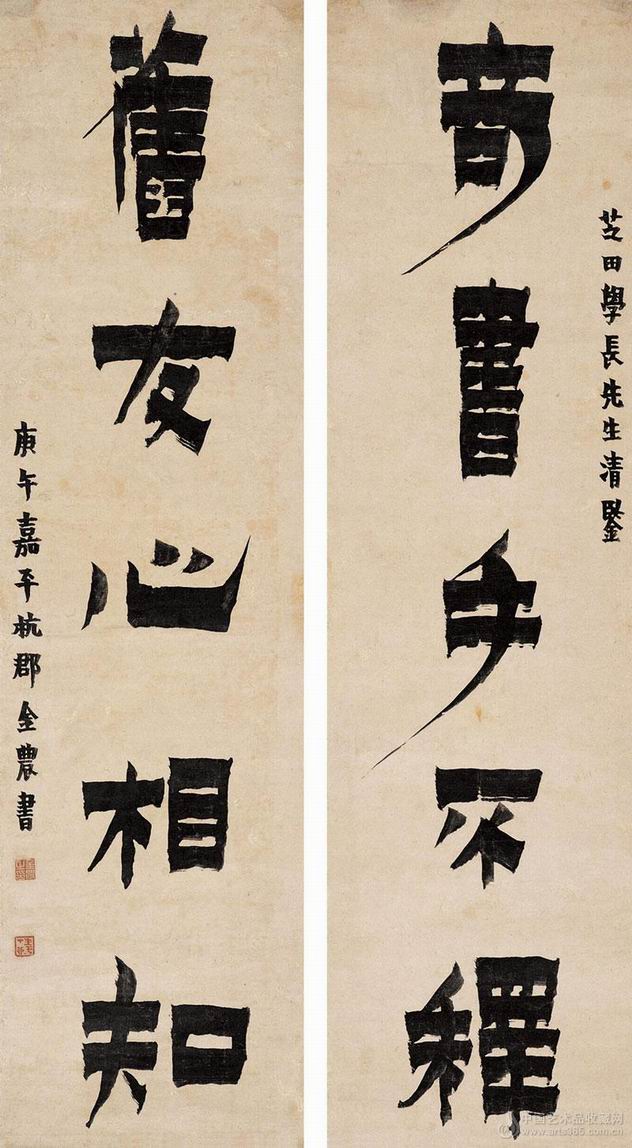 芝田學長先生清鑒
奇書手不釋
舊友心相知
庚午嘉平杭郡金農書
中国艺术品收藏网
www.arts365.com.cn